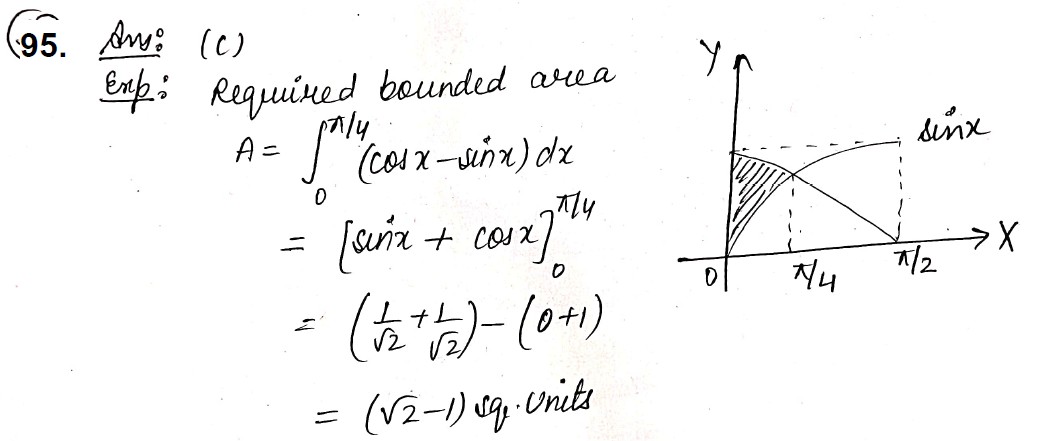 95. Ans: (C)
Exp: Required bounded area
A = ∫₀^π/4 (cosx – sinx) dx
= [sinx + cosx]₀^π/4
= (1/√2 + 1/√2) – (0+1)
= (√2–1) sq. units
Y
sinx
X
0
π/4
π/2